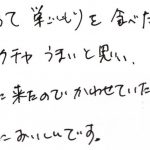 って 巣ごもりを 食べた
クチャ うまいと思い、
に来たので かわせていた
においしいです。